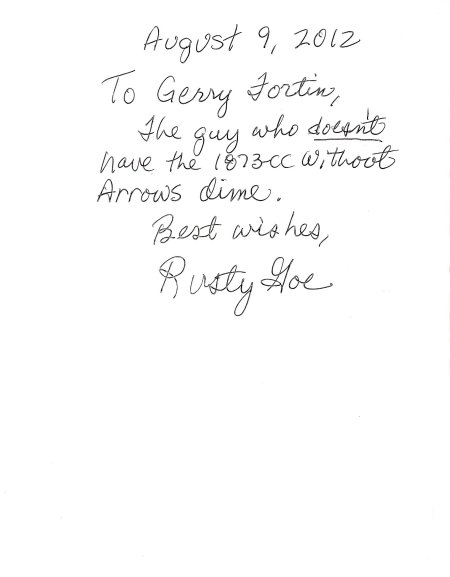 August 9, 2012
To Gerry Fortin,
The guy who doesn't
have the 1873-CC Without
Arrows dime.
Best wishes,
Rusty Goe